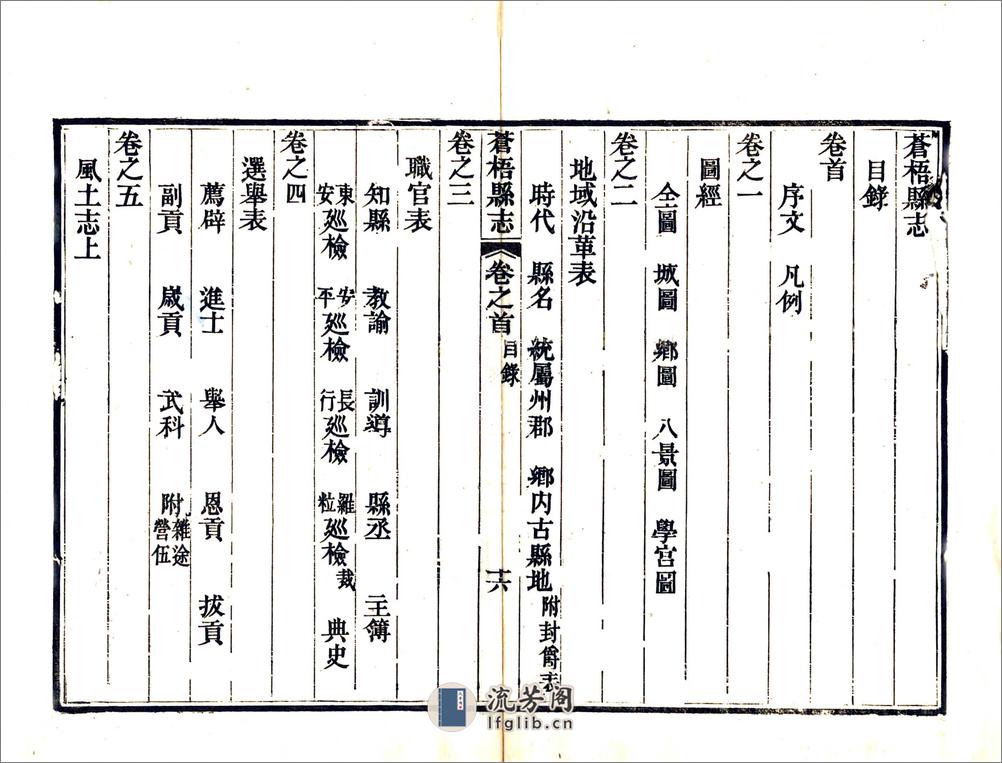 蒼梧縣志
目錄
卷首
序文 凡例
卷之一
圖經
全圖 城圖 鄉圖 八景圖 學宮圖
卷之二
地域沿革表
時代 縣名 統屬州郡 鄉內古縣地 附封爵表
蒼梧縣志 卷之首 目錄 十六
卷之三
職官表
知縣 教諭 訓導 縣丞 主簿
東安巡檢 安平巡檢 長行巡檢 羅粒巡檢裁 典史
卷之四
選舉表
薦辟 進士 舉人 恩貢 拔貢
副貢 歲貢 武科 附雜途營伍
卷之五
風土志上
流芳阁
lfglib.cn